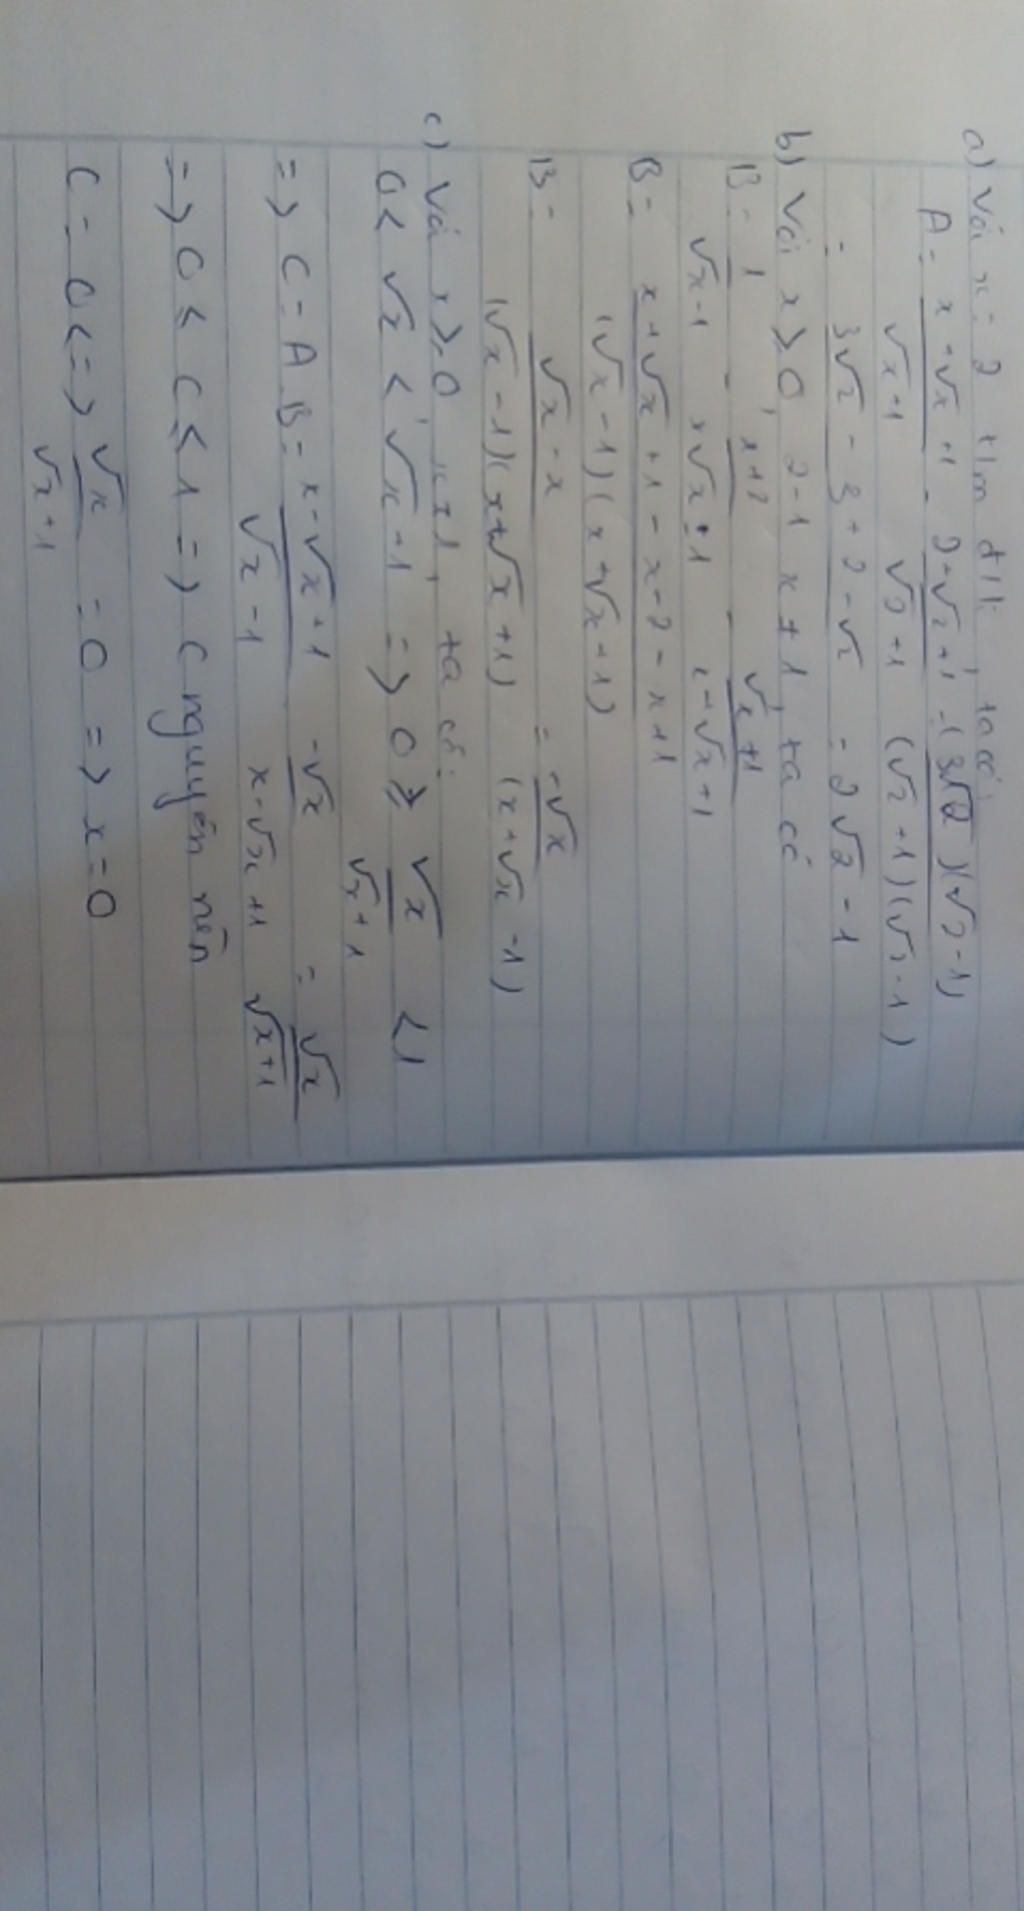 a) Với x = 2 tìm đk, ta có
A = x - √x + 1 / √x + 1 = 2 - √2 + 1 / √2 + 1 = (3 - √2)(√2 - 1) / (√2 + 1)(√2 - 1)
= 3√2 - 3 + 2 - √2 = 2√2 - 1
b) Với x ≥ 0, x ≠ 1, ta có
B = 1 / √x - 1 - x + 2 / x√x - 1 - √x + 1 / x + √x + 1
B = x + √x + 1 - x - 2 - x + 1 / (√x - 1)(x + √x + 1)
B = √x - x / (√x - 1)(x + √x + 1) = -√x / (x + √x - 1)
c) Với x ≥ 0, x ≠ 1, ta có:
0 < √x < √x + 1 => 0 ≥ √x / √x + 1 < 1
=> C = A.B = x - √x + 1 / √x - 1 - √x / x - √x + 1 = √x / √x + 1
=> 0 ≤ C < 1 => C nguyên nên
C = 0 <=> √x / √x + 1 = 0 => x = 0